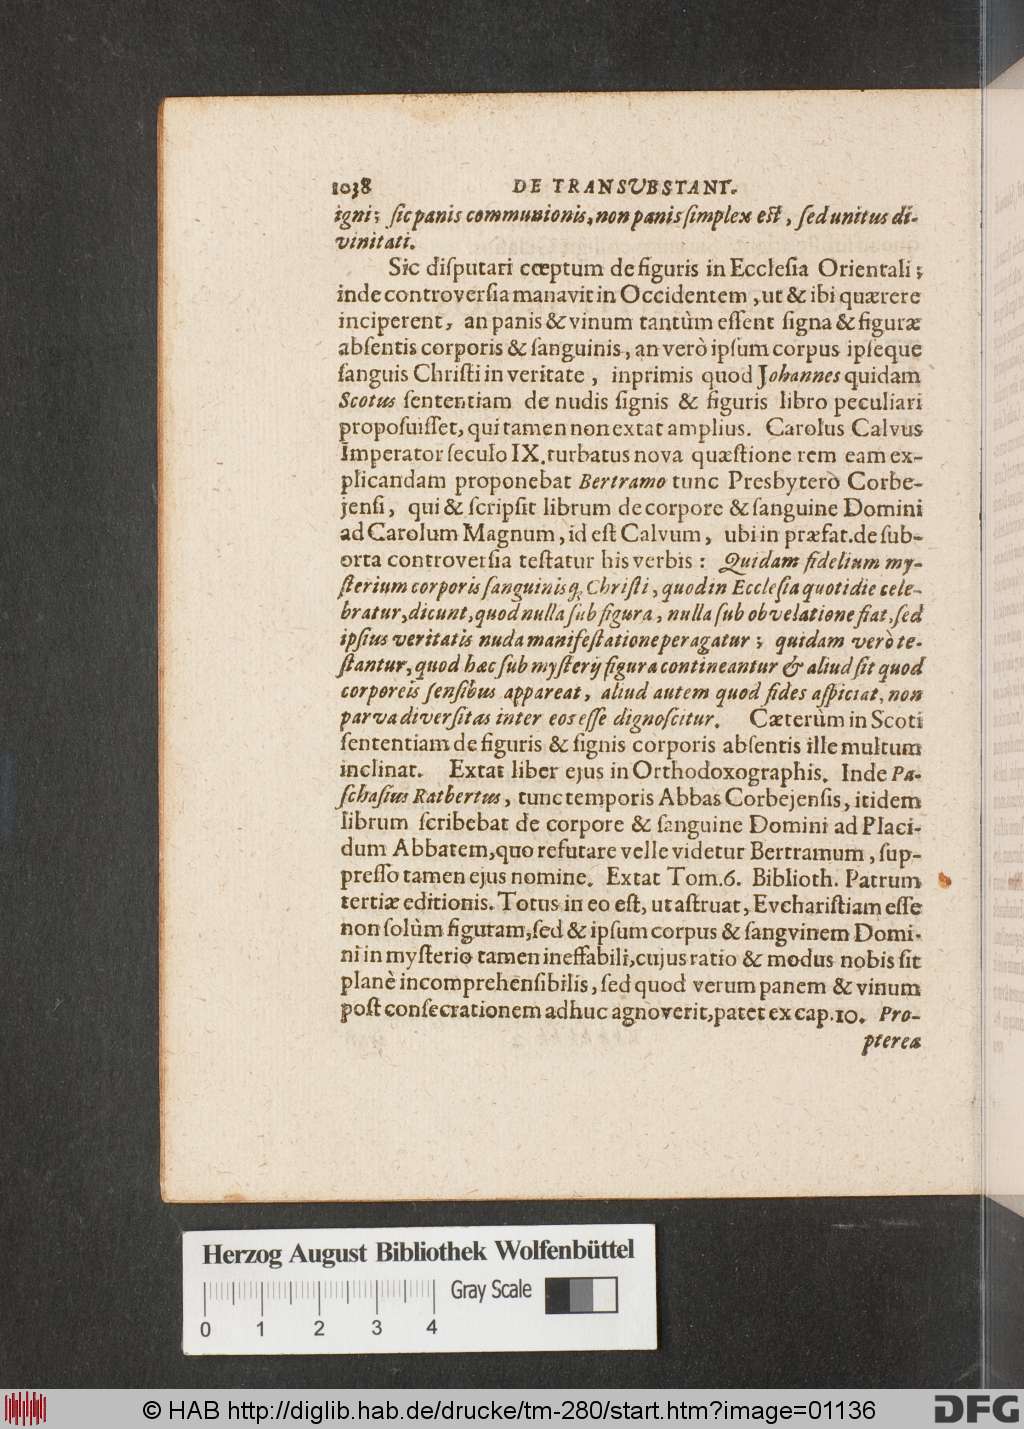 1038 DE TRANSVBSTANT.
igni; ſic panis communionis, non panis ſimplex eſt, ſed unitus di-
vinitati.
Sic diſputari cœptum de figuris in Eccleſia Orientali;
inde controverſia manavit in Occidentem, ut & ibi quærere
inciperent, an panis & vinum tantùm eſſent ſigna & figuræ
abſentis corporis & ſanguinis, an verò ipſum corpus ipſeque
ſanguis Chriſti in veritate, inprimis quod Johannes quidam
Scotus ſententiam de nudis ſignis & figuris libro peculiari
propoſuiſſet, qui tamen non extat amplius. Carolus Calvus
Imperator ſeculo IX. turbatus nova quæſtione rem eam ex-
plicandam proponebat Bertramo tunc Presbytero Corbe-
jenſi, qui & ſcripſit librum de corpore & ſanguine Domini
ad Carolum Magnum, id eſt Calvum, ubi in præfat. de ſub-
orta controverſia teſtatur his verbis: Quidam fidelium my-
ſterium corporis ſanguinisq; Chriſti, quod in Eccleſia quotidie cele-
bratur, dicunt, quod nulla ſub figura, nulla ſub obvelatione fiat, ſed
ipſius veritatis nuda manifeſtatione peragatur; quidam verò te-
ſtantur, quod hæc ſub myſterij figura contineantur & aliud ſit quod
corporeis ſenſibus appareat, aliud autem quod fides aſpiciat, non
parva diverſitas inter eos eſſe dignoſcitur. Cæterùm in Scoti
ſententiam de figuris & ſignis corporis abſentis ille multum
inclinat. Extat liber ejus in Orthodoxographis. Inde Pa-
ſchaſius Ratbertus, tunc temporis Abbas Corbejenſis, itidem
librum ſcribebat de corpore & ſanguine Domini ad Placi-
dum Abbatem, quo refutare velle videtur Bertramum, ſup-
preſſo tamen ejus nomine. Extat Tom. 6. Biblioth. Patrum
tertiæ editionis. Totus in eo eſt, ut aſtruat, Evchariſtiam eſſe
non ſolùm figuram, ſed & ipſum corpus & ſangvinem Domi-
ni in myſterio tamen ineffabili, cujus ratio & modus nobis ſit
planè incomprehenſibilis, ſed quod verum panem & vinum
poſt conſecrationem adhuc agnoverit, patet ex cap. 10. Pro-
pterea
Herzog August Bibliothek Wolfenbüttel
Gray Scale
0 1 2 3 4
© HAB http://diglib.hab.de/drucke/tm-280/start.htm?image=01136
DFG